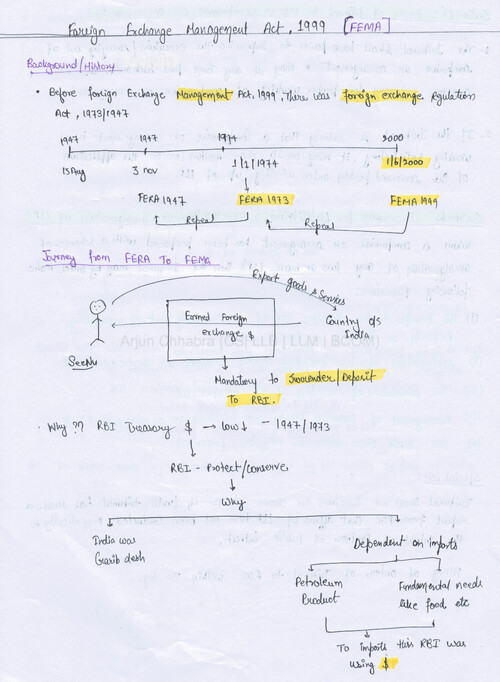 Foreign Exchange Management Act, 1999 [FEMA]
Background/History
• Before foreign Exchange Management Act, 1999, There was foreign exchange Regulation
Act, 1973/1947
1947 1947 1974 2000
15 Aug 3 nov 1/1/1974 1/6/2000
FERA 1947 FERA 1973 FEMA 1999
Repeal Repeal
Journey from FERA To FEMA
Export goods & Services
Earned Foreign
exchange $
Country o/s
India
SeeNu
Arjun Chhabra (CS| LLB | LLM | BCOM)
Mandatory to Surrender/Deposit
To RBI.
• Why ?? RBI Treasury $ → Low↓ - 1947/1973
RBI - Protect/Conserve
Why
India was
Garib desh
Dependent on imports
Petroleum
Product
Fundamental needs
like food, etc
To imports this RBI was
using $